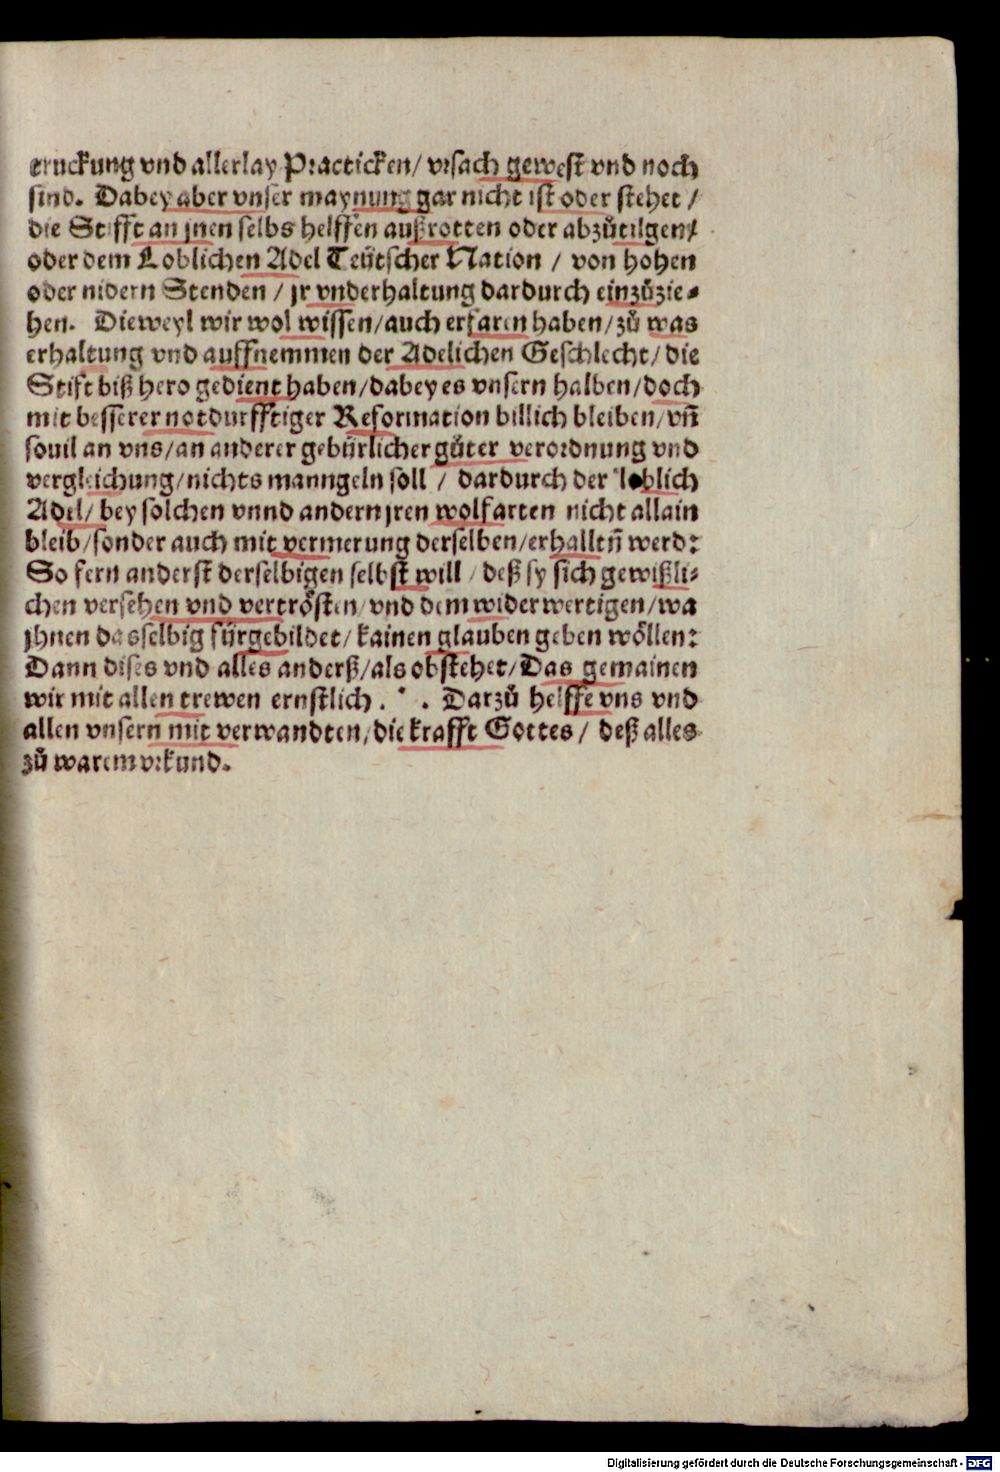 truckung vnd allerlay Practicken/ vrsach gewest vnd noch
sind. Dabey aber vnser maynung gar nicht ist oder stehet /
die Stifft an jnen selbs helffen außrotten oder abzůtilgen/
oder dem Loblichen Adel Teütscher Nation / von hohen
oder nidern Stenden / jr vnderhaltung dardurch einzůzie-
hen. Dieweyl wir wol wissen/auch erfaren haben/zů was
erhaltung vnd auffnemmen der Adelichen Geschlecht/ die
Stift biß hero gedient haben/dabey es vnsern halben/doch
mit besserer notdurfftiger Reformation billich bleiben/vñ
souil an vns/an anderer gebürlicher gůter verordnung vnd
vergleichung/nichts manngeln soll / dardurch der loblich
Adel/ bey solchen vnnd andern jren wolfarten nicht allain
bleib/sonder auch mit vermerung derselben/erhalltñ werd:
So fern anderst derselbigen selbst will / deß sy sich gewißli-
chen versehen vnd vertrösten/vnd dem widerwertigen/wa
jhnen dasselbig fürgebildet/ kainen glauben geben wöllen:
Dann dises vnd alles anderß/als obstehet/Das gemainen
wir mit allen trewen ernstlich . ˙ . Darzů helffe vns vnd
allen vnsern mit verwandten/die krafft Gottes / deß alles
zů warem vrkund.
Digitalisierung gefördert durch die Deutsche Forschungsgemeinschaft - DFG